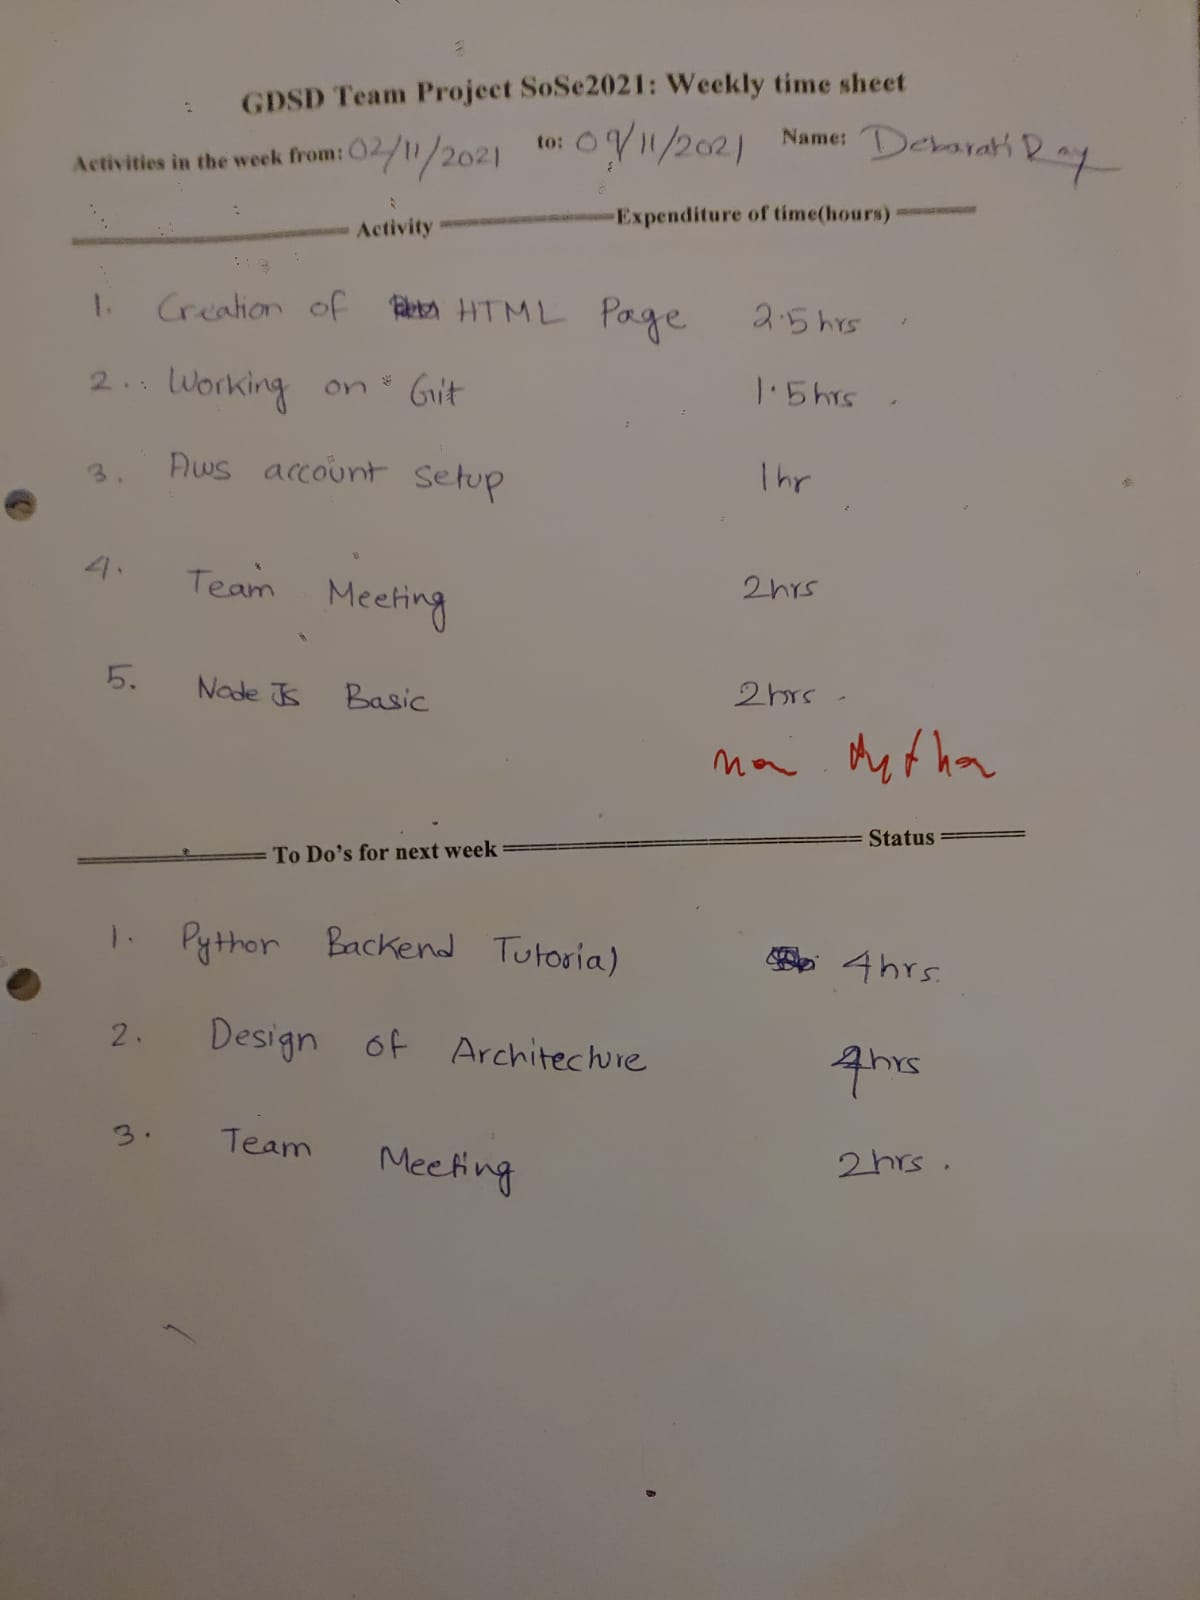 GDSD Team Project SoSe2021: Weekly time sheet
Activities in the week from: 02/11/2021 to: 09/11/2021 Name: Debarati Ray
Activity Expenditure of time(hours)
1. Creation of HTML Page 2.5 hrs
2. Working on Git 1.5 hrs
3. Aws account setup 1 hr
4. Team Meeting 2hrs
5. Node Js Basic 2hrs
To Do's for next week Status
1. Python Backend Tutorial 4hrs.
2. Design of Architecture 4hrs
3. Team Meeting 2hrs.